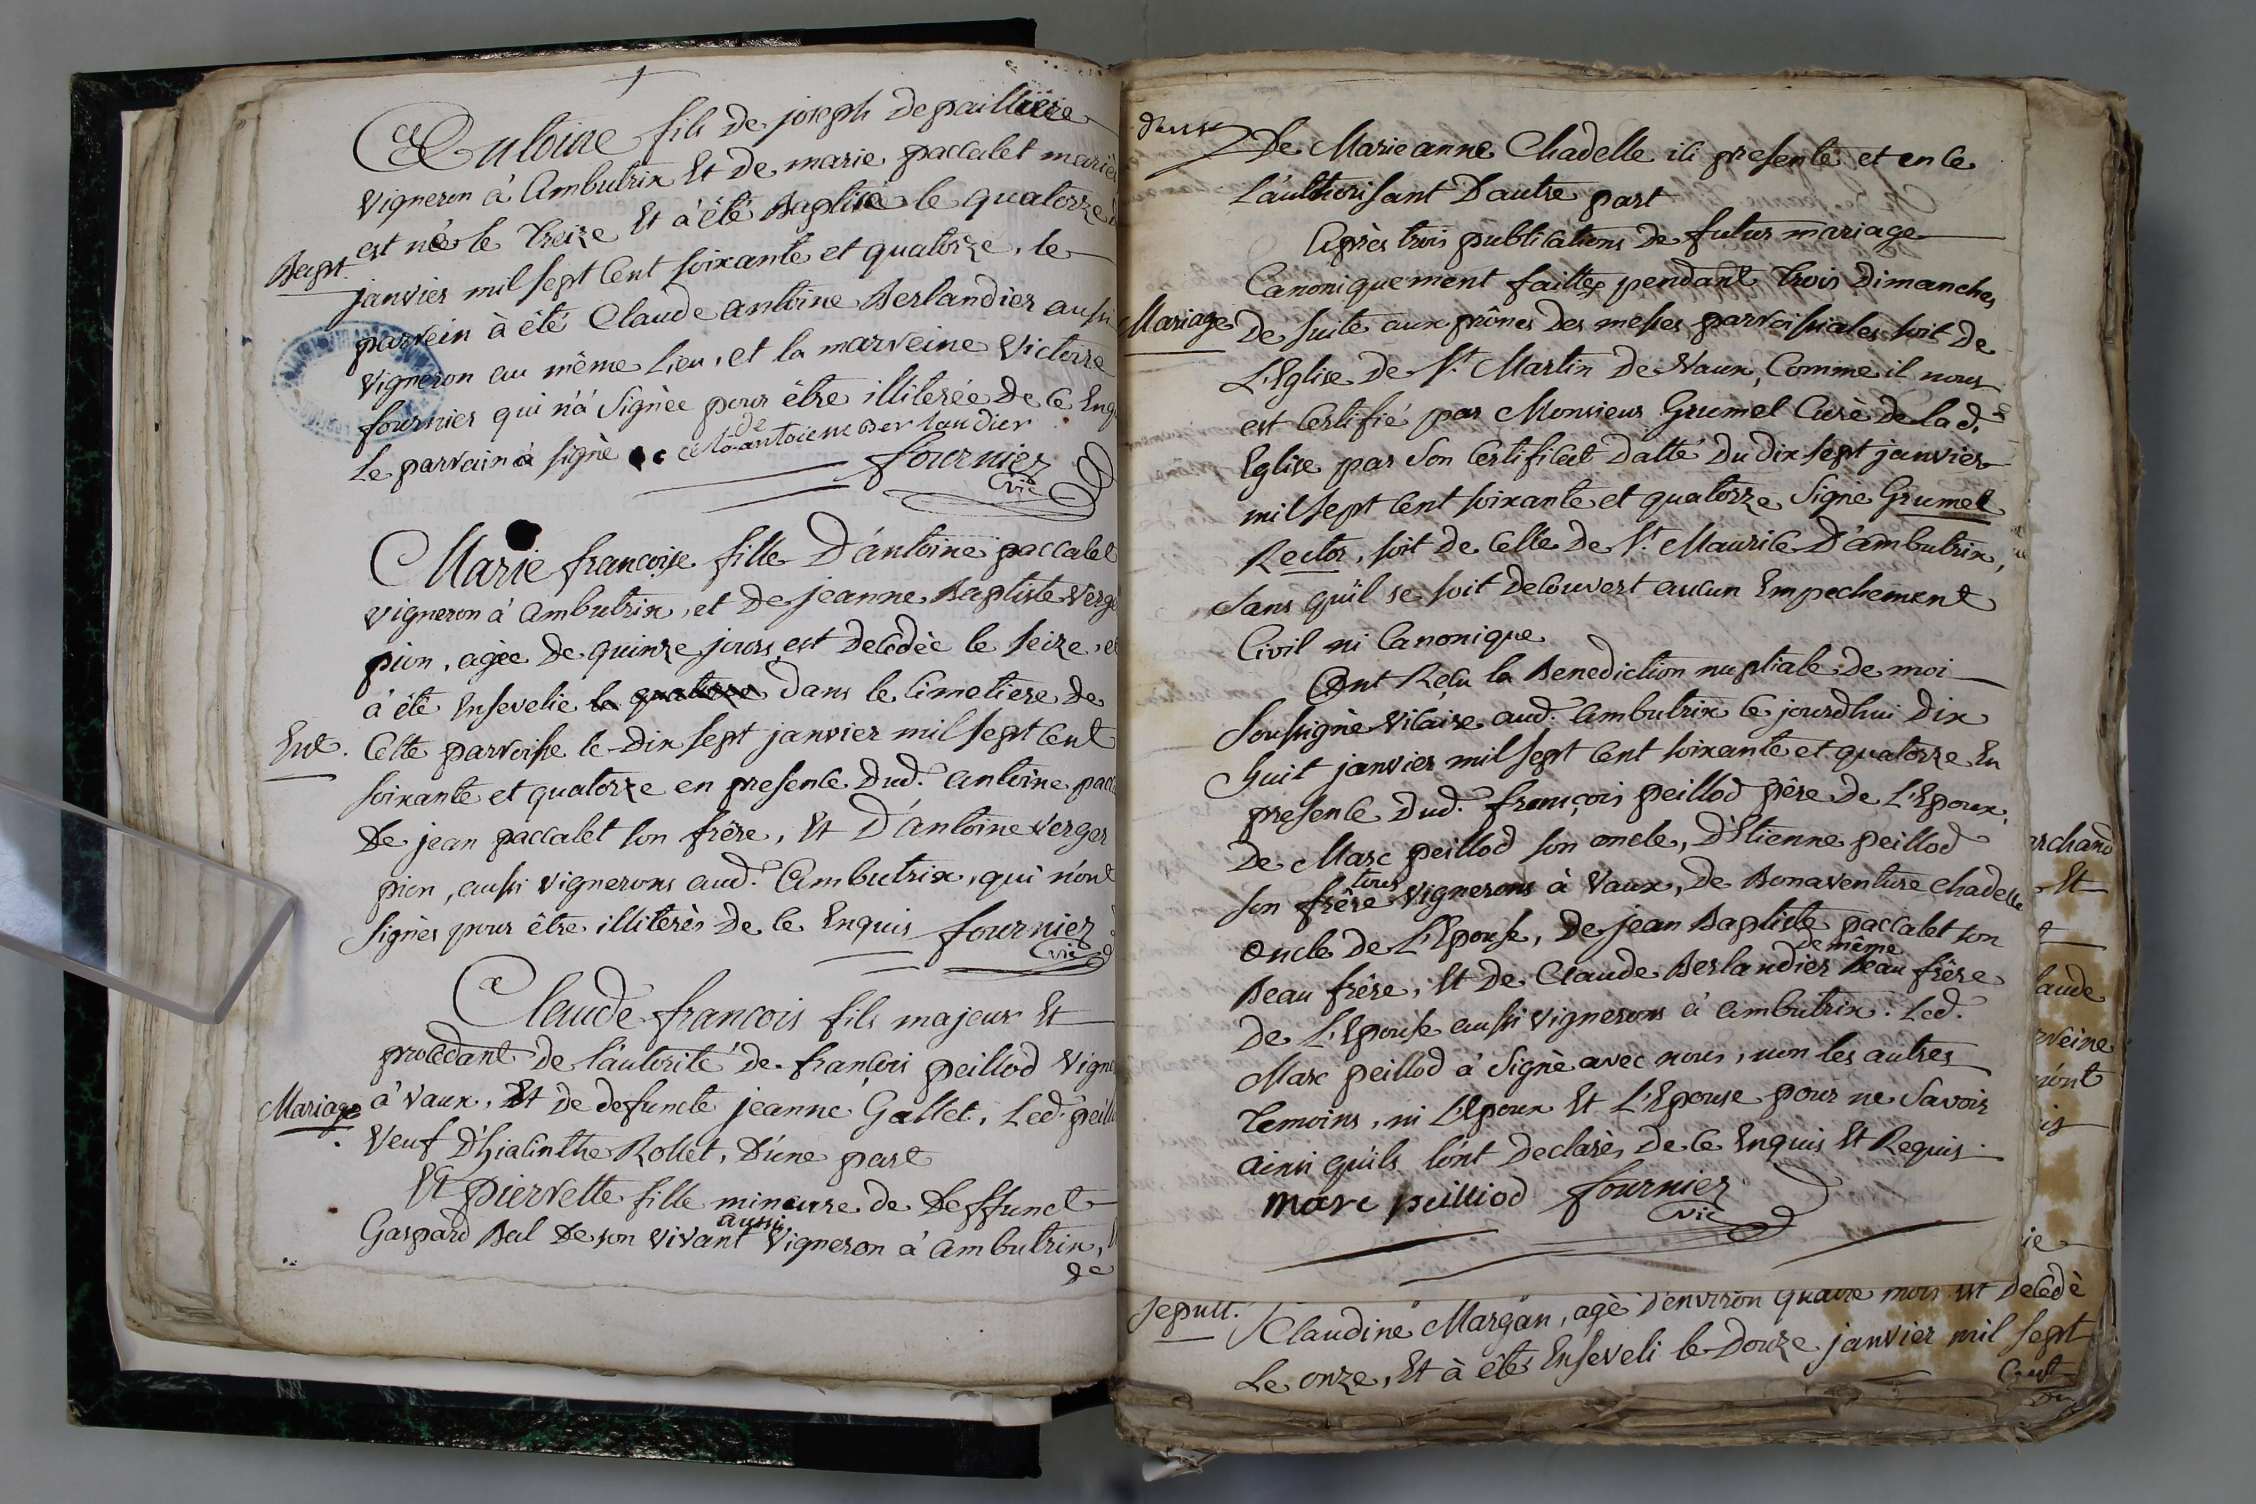 Antoine fils de joseph Depailliere
vigneron à Ambutrix Et de marie paccalet mariés
Bapt. est né le treize Et à été Baptisé le quatorze
janvier mil sept Cent soixante et quatorze, le
parrein à été Claude antoine Berlandier aussi
vigneron au même Lieu, et la marreine Victoire
fournier qui n'á signée pour être illiterée De Ce Enq
Le parrain à signè cla de antoiene Berlandier
fournier
vic
Marie francoise fille D'ántoine paccalet
vigneron à ambutrix, et De jeanne Baptiste verge
pion, agée De quinze jours est Decédée le seize, et
à été Ensevelie le quatorze dans le Cimetiere De
Ent. Cette parroisse le Dix sept janvier mil sept Cent
soixante et quatorze en presence Dud. antoine pacc
De jean paccalet son frére, Et D'ántoine verger
pion, aussi vignerons aud. Ambutrix, qui n'ónt
signés pour être illiterés De Ce Enquis fournier
vic
Claude francois fils majeur Et
procédant De l'áutorité De françois peillod Vigne
Mariage à Vaux, Et De defuncte jeanne Gallet, Led. peillo
Veuf D'hiacinthe Rollet, D'úne part
Et pierrette fille mineure de Deffunct
aussi
Gaspard Bal De son vivant Vigneron à ambutrix,
de
De Marieanne Chadelle ici presente et en Ce
L'áuthorisant D'autre part
Après trois publications De futur mariage
Canoniquement faittes pendant trois Dimanches
Mariage De suite aux prônes Des messes parroissiales soit De
L'Eglise De St. Martin De Vaux, Comme il nous
est Certifié par Monsieur Grumel Curè De lad.
Eglise par son Certificat Datté Du Dix sept janvier
mil sept Cent soixante et quatorze Signé Grumel
Rector, soit De Celle De St. Maurice D'ámbutrix,
sans qu'il se soit Découvert aucun Empechement
Civil ni Canonique
Ont Reçu la Benediction nuptiale De moi
soussigné vicaire aud. ambutrix Ce jourd'hui Dix
huit janvier mil sept Cent soixante et quatorze En
presence Dud. françois peillod pére De L'Epoux,
De Marc peillod son oncle, D'Etienne peillod
tous
son frère vignerons à Vaux, De Bonaventure chadelle
oncle De L'Epouse, De jean Baptiste paccalet son
de même
Beau frére, Et De Claude Berlandier Beau frére
De L'Epouse aussi vignerons à ambutrix. Led.
Marc peillod à signé avec nous, non les autres
temoins, ni L'Epoux Et L'Epouse pour ne savoir
ainsi qu'ils l'ónt Declaré, De Ce Enquis Et Requis
marc peilliod fournier
vic
rchand
Et
laude
rveine
n'ónt
is
ie
Sepult. Claudine Margan, agé D'environ quatre mois est Decédè
Le onze, Et à été Enseveli le Douze janvier mil sept
Cent